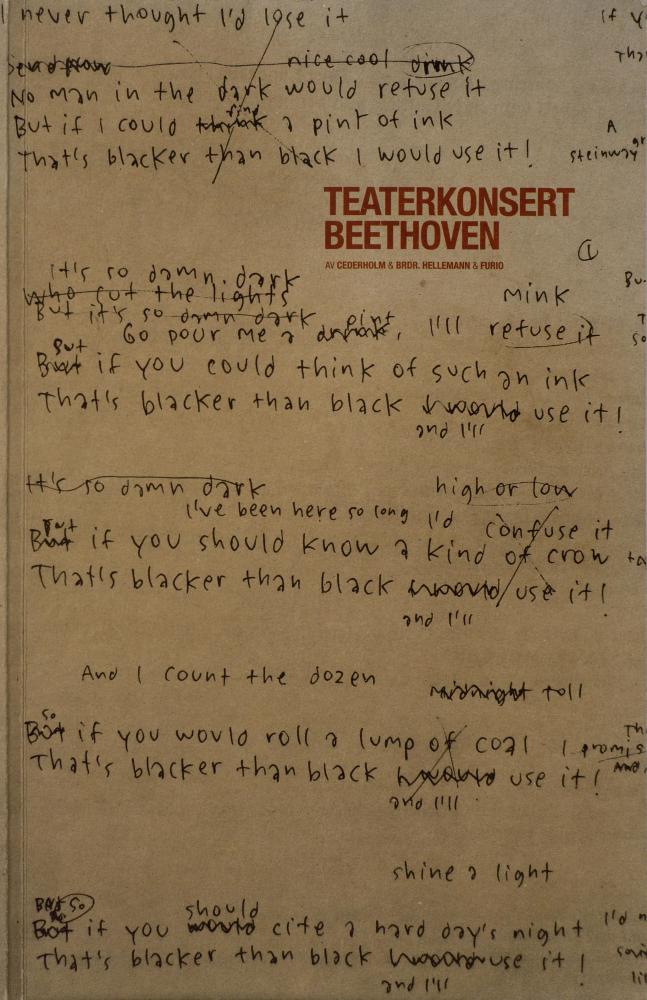 I never thought I'd lose it
If
nice cool drink
No man in the dark would refuse it
But if I could find a pint of ink
A
That's blacker than black I would use it!
steinway
TEATERKONSERT
BEETHOVEN
AV CEDERHOLM & BRDR. HELLEMANN & FURIO
1
It's so damn dark
who cut the lights
mink
But it's so damn dark
pint
Go pour me a drink, I'll refuse it
But
But if you could think of such an ink
That's blacker than black I would use it!
and I'll
It's so damn dark
high or low
I've been here so long I'd confuse it
But
But if you should know a kind of crow
That's blacker than black I would use it!
and I'll
And I count the dozen
midnight toll
So
But if you would roll a lump of coal I promise
That's blacker than black I would use it!
and I'll
shine a light
But so
should
But if you would cite a hard day's night I'd
That's blacker than black I would use it!
and I'll